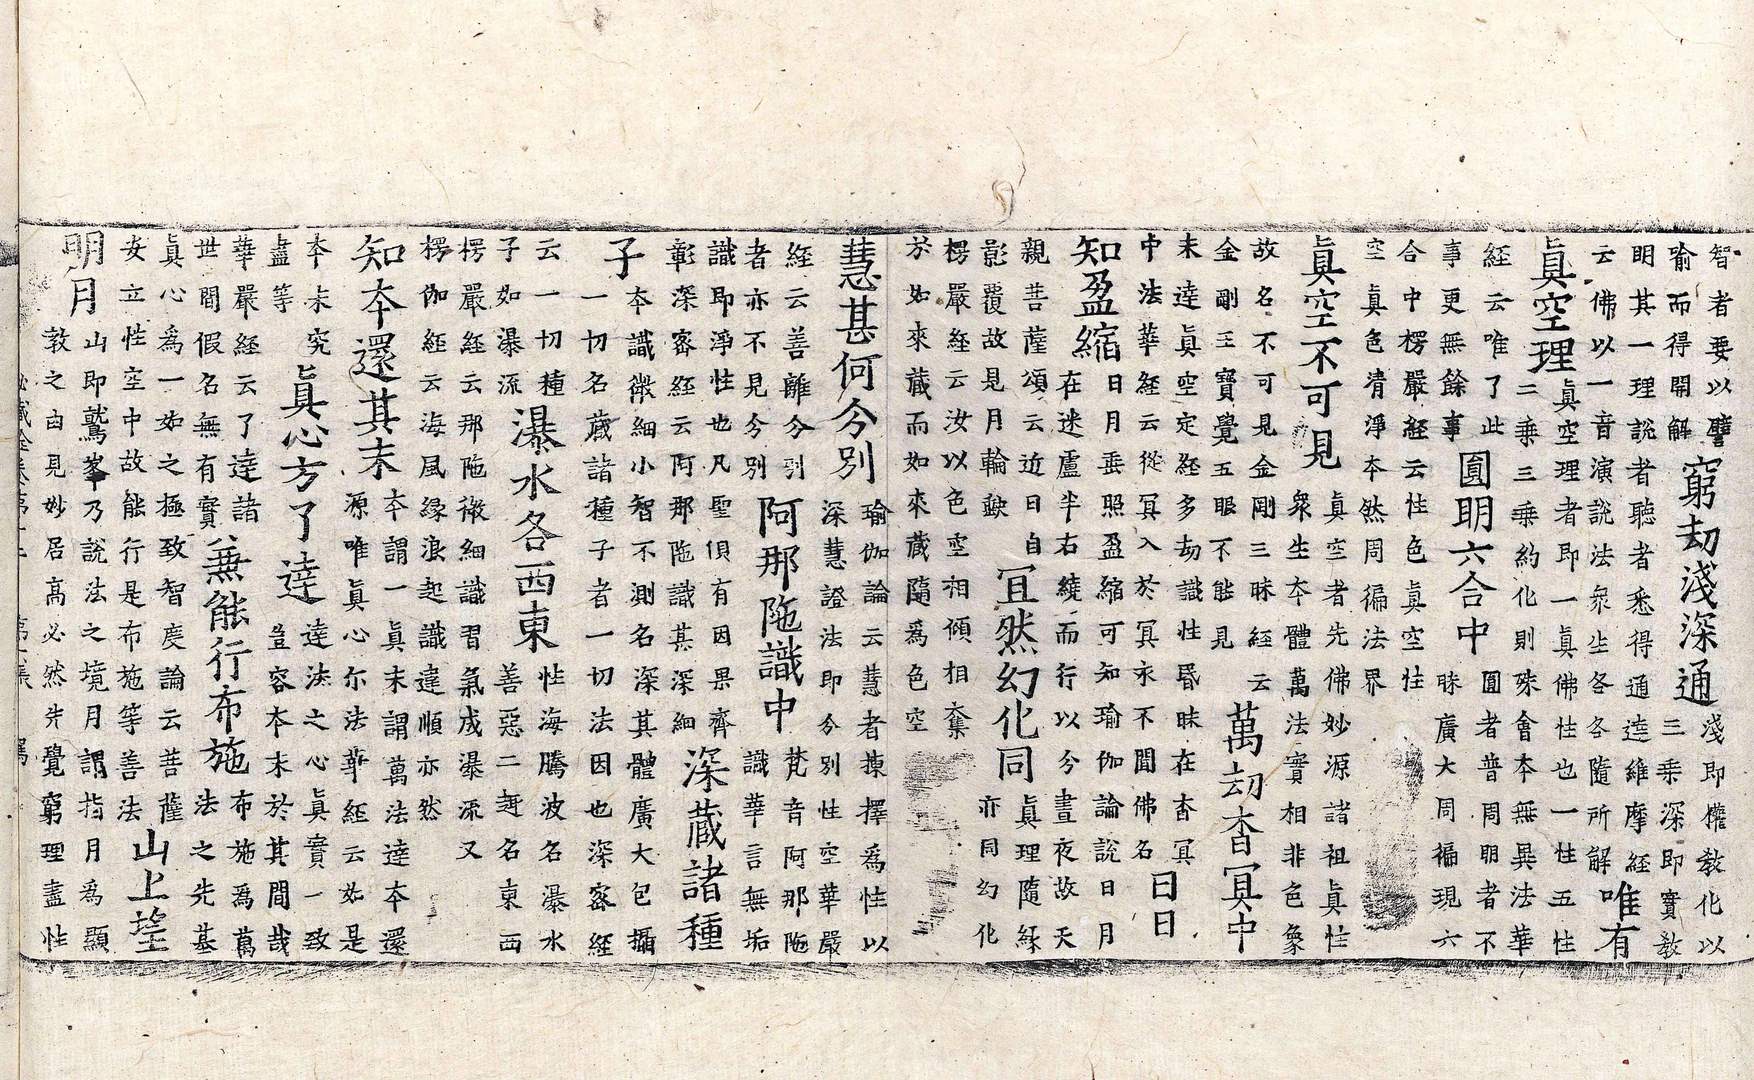 智者要以譬
喻而得開解
窮劫淺深通
淺即權教化以
三乘深即實教
明其一理說者聽者悉得通達維摩經
云佛以一音演說法衆生各各隨所解
唯有
眞空理
眞空理者即一眞佛性也一性五性
二乘三乘約化則殊會本無異法華
經云唯了此
事更無餘事
圓明六合中
圓者普周明者不
昧廣大周徧現六
合中楞嚴經云性色眞空性
空眞色清淨本然周徧法界
眞空不可見
眞空者先佛妙源諸祖眞性
衆生本體萬法實相非色象
故名不可見金剛三昧經云
金剛王寶覺五眼不能見
萬劫杳冥中
未達眞空定經多劫識性昏昧在杳冥
中法華經云從冥入於冥永不聞佛名
日日
知盈縮
日月垂照盈縮可知瑜伽論說日月
在迷盧半右繞而行以分晝夜故天
親菩薩頌云近日自
影覆故是月輪缺
宜然幻化同
眞理隨緣
亦同幻化
楞嚴經云汝以色空相傾相奪
於如來藏而如來藏隨爲色空
慧甚何分別
瑜伽論云慧者揀擇爲性以
深慧證法即分別性空華嚴
經云善離分別
者亦不見分別
阿那陁識中
梵音阿那陁
識華言無垢
識即淨性也凡聖俱有因果齊
彰深密經云阿那陁識甚深細
深藏諸種
子
本識微細小智不測名深其體廣大包攝
一切名藏諸種子者一切法因也深密經
云一切種
子如瀑流
瀑水各西東
性海騰波名瀑水
善惡二趣名東西
楞嚴經云那陁微細識習氣成瀑流又
楞伽經云海風緣浪起識違順亦然
知本還其末
本謂一眞末謂萬法達本還
源唯眞心尔法華經云如是
本末究
盡等
眞心方了達
達法之心眞實一致
豈容本末於其間哉
華嚴經云了達諸
世間假名無有實
無能行布施
布施爲萬
法之先基
眞心爲一如之極致智度論云菩薩
安立性空中故能行是布施等善法
山上望
明月
山即鷲峯乃說法之境月謂指月爲顯
教之由見妙居高必然先覺窮理盡性